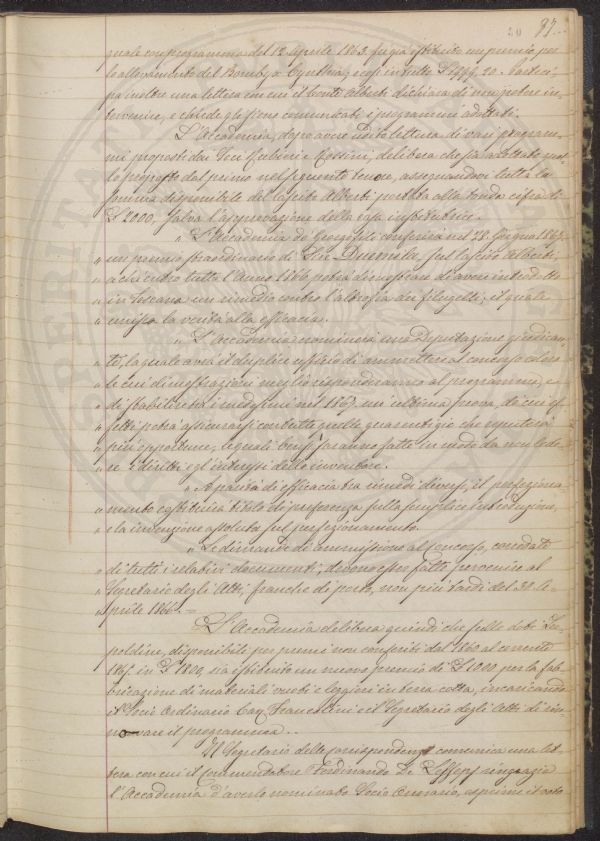 20 97.
quale con programma del 12 Aprile 1863. fu già istituito un premio per
lo allevamento del Bombyx Cynthia; in tutto 20. Parteci-
pa inoltre una lettera con cui il Conte Alberti dichiara di non potere in-
tervenire, e chiede gli sieno comunicati i programmi adottati.
L'Accademia, dopo avere udito lettura di vari program-
mi proposti dai Soci e Cossini, delibera che sia adottato quel-
lo proposto dal primo nel seguente tenore, assegnandovi tutta la
somma disponibile del lascito Alberti portata alla tonda cifra di
2000, salva l'approvazione della
" L'Accademia dei Georgofili conferirà nel 28. Giugno 1867.
" un premio straordinario di Lire Duemila, sul lascito Alberti,
" a chi entro tutto l'Anno 1866 potrà dimostrare di avere introdotto
" in Toscana un rimedio contro l'atrofia dei filugelli; il quale
" unisca la verità alla efficacia.
" L'Accademia nominerà una Deputazione giudican-
" te, la quale avrà il duplice ufficio di ammettere al concorso coloro
" le cui dimostrazioni meglio risponderanno al programma, e
" di stabilire tra i medesimi nel 1867, un'ultima prova, di cui ef-
" fetti potrà assicurarsi con tutte quelle guarentigie che reputerà
" più opportune, le quali bensì saranno fatte in modo da non lede-
" re i diritti e gl'interessi dello inventore.
" A parità di efficacia tra rimedi diversi, il perfeziona-
" mento costituirà titolo di preferenza sulla semplice introduzione,
" e la invenzione assoluta sul perfezionamento.
" Le dimande di ammissione al Concorso, corredate
" di tutti i relativi documenti, devono esser fatte pervenire al
" Segretario degli Atti, franche di porto, non più tardi del 30 A-
" prile 1866. =
L'Accademia delibera quindi che sulle doti Leo-
poldine, disponibili per premi non conferiti dal 1860 al corrente
1865. in 1800, sia istituito un nuovo premio di 1000 per la fab-
bricazione di materiali vuoti e leggieri in terra cotta, incaricando
il Socio Ordinario Cav. Francolini e il Segretario degli Atti di rin-
novare il programma. .
Il Segretario delle corrispondenze comunica una let-
tera con cui il Commendatore Ferdinando De Lesseps ringrazia
l'Accademia d'averlo nominato Socio Onorario, esprime il voto